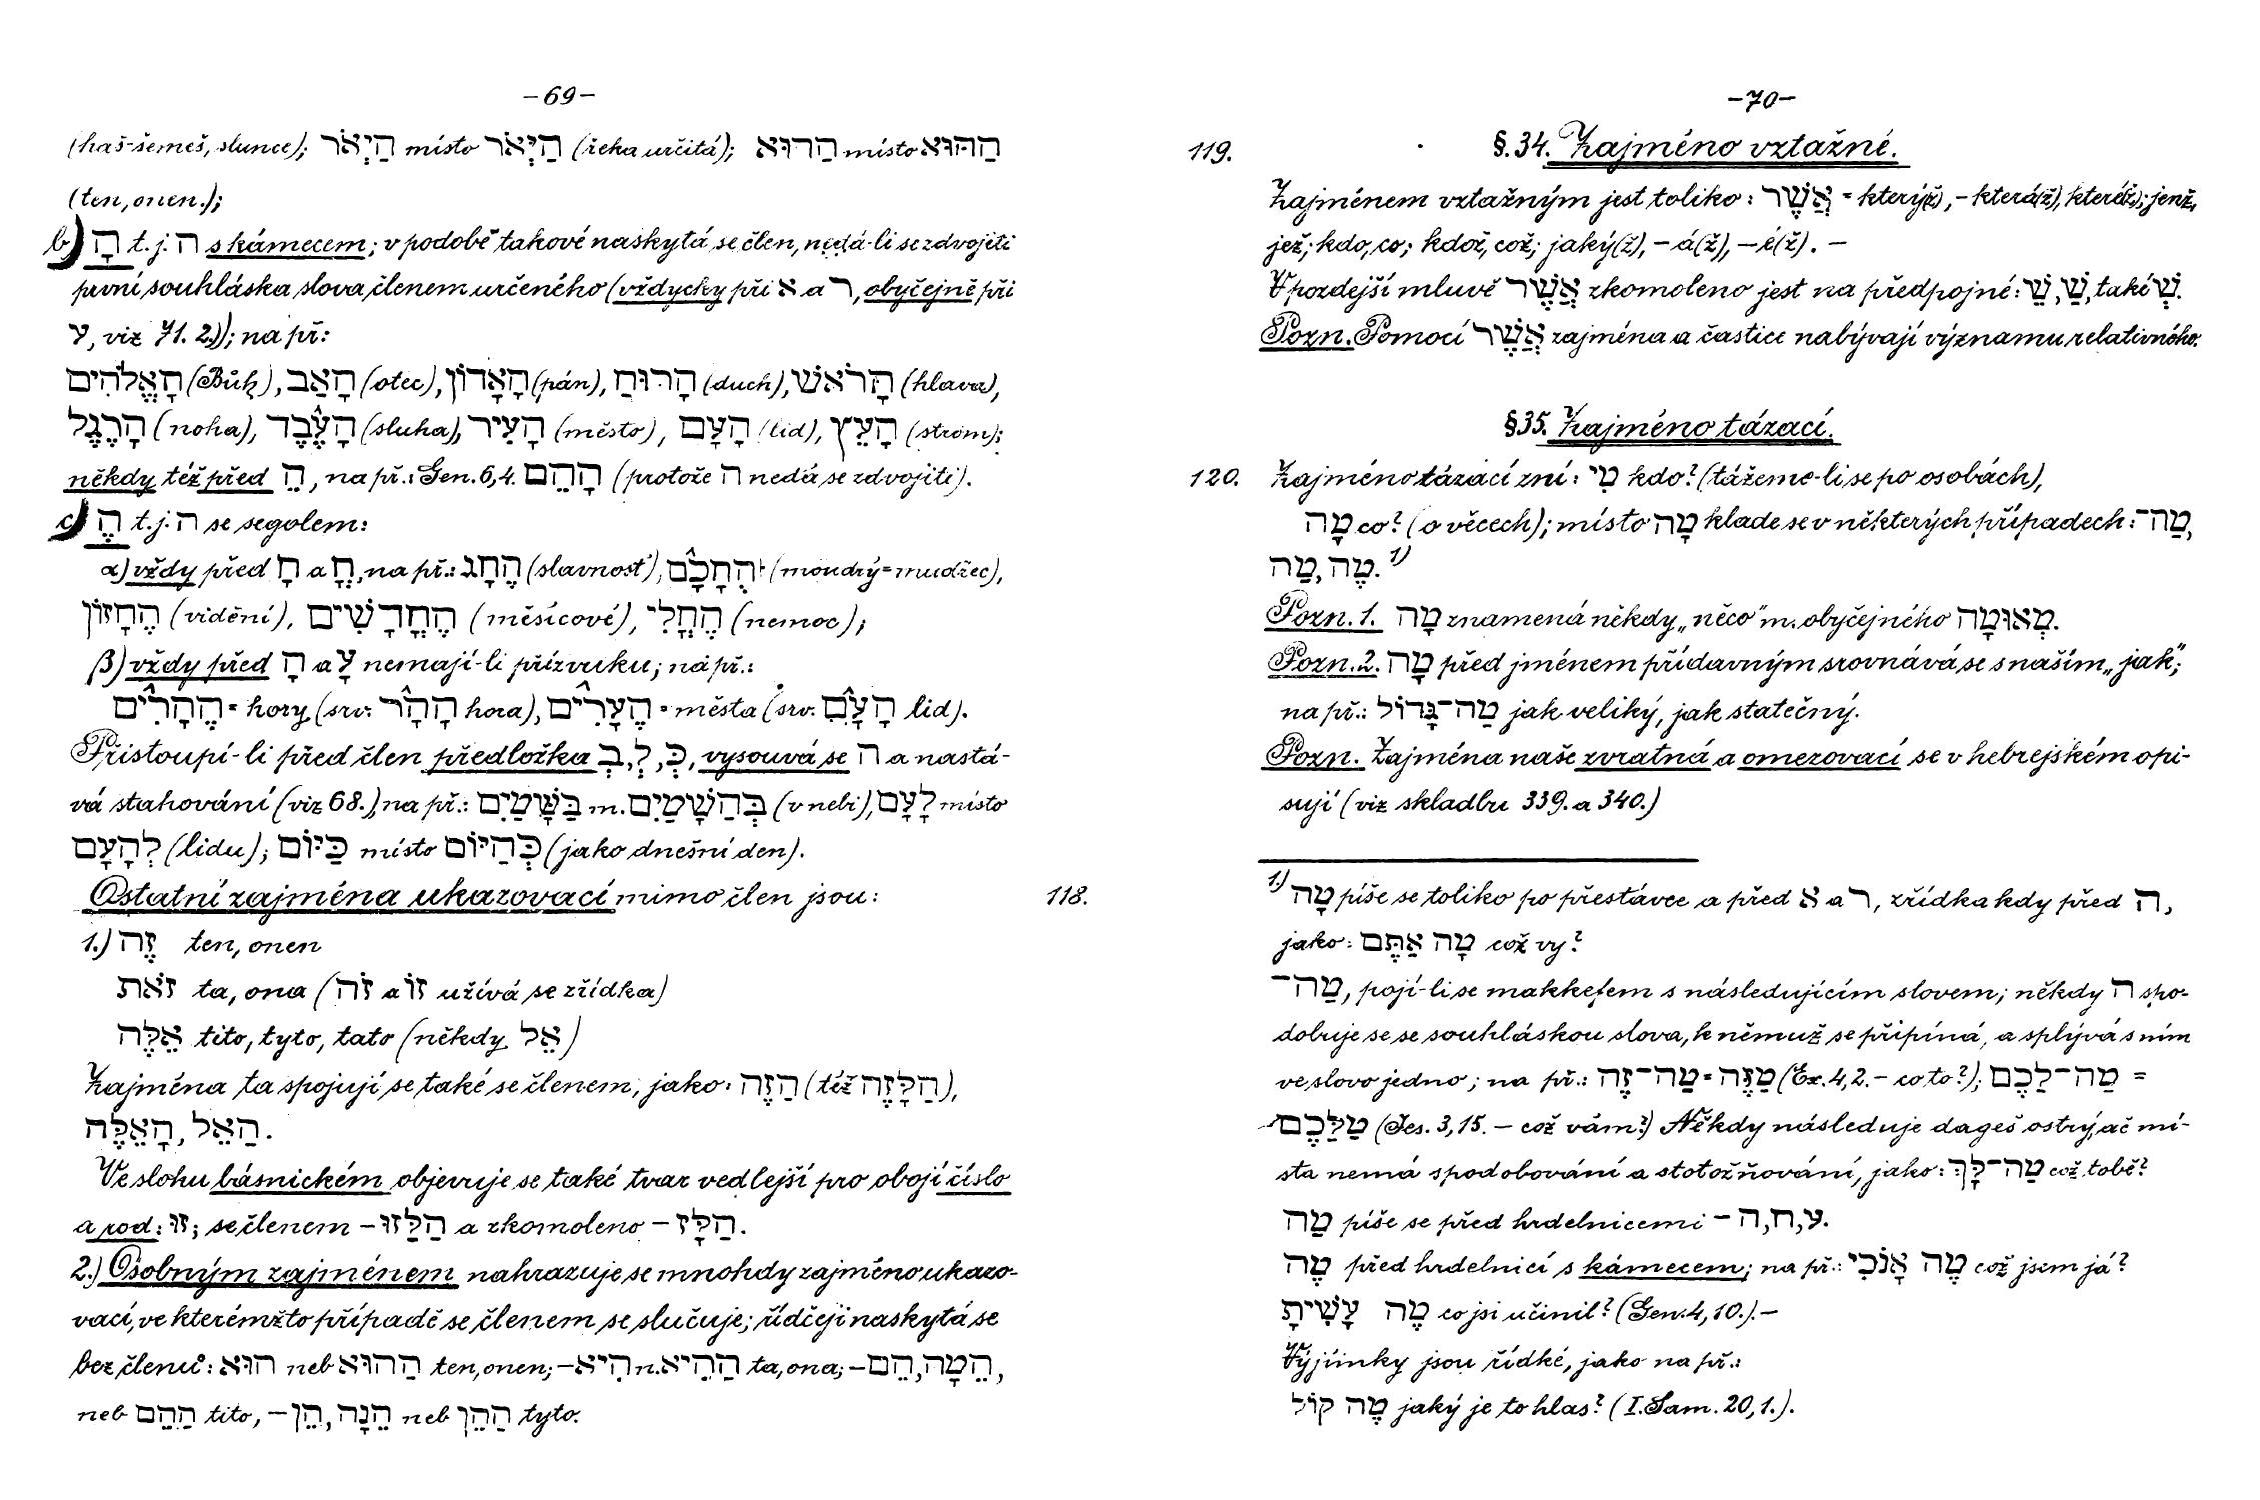 -69-
(haš-šemeš, slunce); הַיְאֹר místo הַיְּאֹר (řeka určitá); הַהוּא místo הַהּוּא
(ten, onen.);
b) הָ t. j. ה s kámecem; v podobě takové naskytá se člen, nedá-li se zdvojiti
první souhláska slova členem určeného (vždycky při א a ר, obyčejně při
ע, viz 71. 2.)); na př.:
הָאֱלֹהִים (Bůh), הָאַב (otec), הָאָדוֹן (pán), הָרוּחַ (duch), הָרֹאשׁ (hlava),
הָרֶגֶל (noha), הָעֶבֶד (sluha), הָעִיר (město), הָעָם (lid), הָעֵץ (strom);
někdy též před הֵ, na př.: Gen. 6,4. הָהֵם (protože ה nedá se zdvojiti).
c) הֶ t. j. ה se segolem:
α) vždy před חָ a חֳ, na př.: הֶחָג (slavnost), הֶחָכָם (moudrý = mudřec),
הֶחָזוֹן (vidění), הֶחֳדָשִׁים (měsícové), הֶחֳלִי (nemoc);
β) vždy před הָ a עָ nemají-li přízvuku; na př.:
הֶהָרִים = hory (srv. הָהָר hora), הֶעָרִים = města (srv. הָעָם lid).
Přistoupí-li před člen předložka בְּ, לְ, כְּ, vysouvá se ה a nastá-
vá stahování (viz 68.), na př.: בַּשָּׁמַיִם m. בְּהַשָּׁמַיִם (v nebi), לָעָם místo
לְהָעָם (lidu); כַּיּוֹם místo כְּהַיּוֹם (jako dnešní den).
Ostatní zajména ukazovací mimo člen jsou: 118.
1.) זֶה ten, onen
זֹאת ta, ona (זֹה a זוֹ užívá se zřídka)
אֵלֶּה tito, tyto, tato (někdy אֵל)
Zajména ta spojují se také se členem, jako: הַזֶּה (též הַלָּזֶה),
הָאֵלֶּה, הָאֵל.
Ve slohu básnickém objevuje se také tvar vedlejší pro obojí číslo
a rod: זוּ; se členem – הַלֵּזוּ a zkomoleno – הַלָּז.
2.) Osobným zajménem nahrazuje se mnohdy zajméno ukazo-
vací, ve kterémžto případě se členem se slučuje; řídčeji naskytá se
bez členu: הוּא neb הַהוּא ten, onen; – הִיא n. הַהִיא ta, ona; – הֵם, הֵמָּה,
neb הָהֵם tito, – הֵן, הֵנָּה neb הָהֵן tyto.
-70-
119. §. 34. Zajméno vztažné.
Zajménem vztažným jest toliko: אֲשֶׁר = který(ž), – která(ž), které(ž); jenž,
jež; kdo, co; kdož, což; jaký(ž), – á(ž), – é(ž). –
V pozdejší mluvě אֲשֶׁר zkomoleno jest na předpojné: שֶׁ, שַׁ, také שְׁ.
Pozn. Pomocí אֲשֶׁר zajména a častice nabývají významu relativného.
§35. Zajméno tázací.
120. Zajméno tázací zní: מִי kdo? (tážeme-li se po osobách),
מָה co? (o věcech); místo מָה klade se v některých případech: מַה־,
מַה, מֶה. 1)
Pozn. 1. מָה znamená někdy „něco“ m. obyčejného מְאוּמָה.
Pozn. 2. מָה před jménem přídavným srovnává se s naším „jak“;
na př.: מַה־גָּדוֹל jak veliký, jak statečný.
Pozn. Zajména naše zvratná a omezovací se v hebrejském opi-
sují (viz skladbu 339. a 340.)
1.) מָה píše se toliko po přestávce a před א a ר, zřídka kdy před ה,
jako: מָה אַתֶּם což vy?
מַה־, pojí-li se makkefem s následujícím slovem; někdy ה spo-
dobuje se se souhláskou slova, k němuž se připíná, a splývá s ním
ve slovo jedno; na př.: מַזֶּה = מַה־זֶּה (Ex. 4,2. – co to?); מַה־לָכֶם =
מַלָּכֶם (Jes. 3,15. – což vám?) Někdy následuje dageš ostrý, ač mí-
sta nemá spodobování a stotožňování, jako: מַה־לָּךְ což tobě?
מַה píše se před hrdelnicemi – ה, ח, ע.
מֶה před hrdelnicí s kámecem; na př.: מֶה אָנֹכִי což jsem já?
מֶה עָשִׂיתָ co jsi učinil? (Gen. 4,10.). –
Výjimky jsou řídké, jako na př.:
מֶה קוֹל jaký je to hlas? (I. Sam. 20,1.).